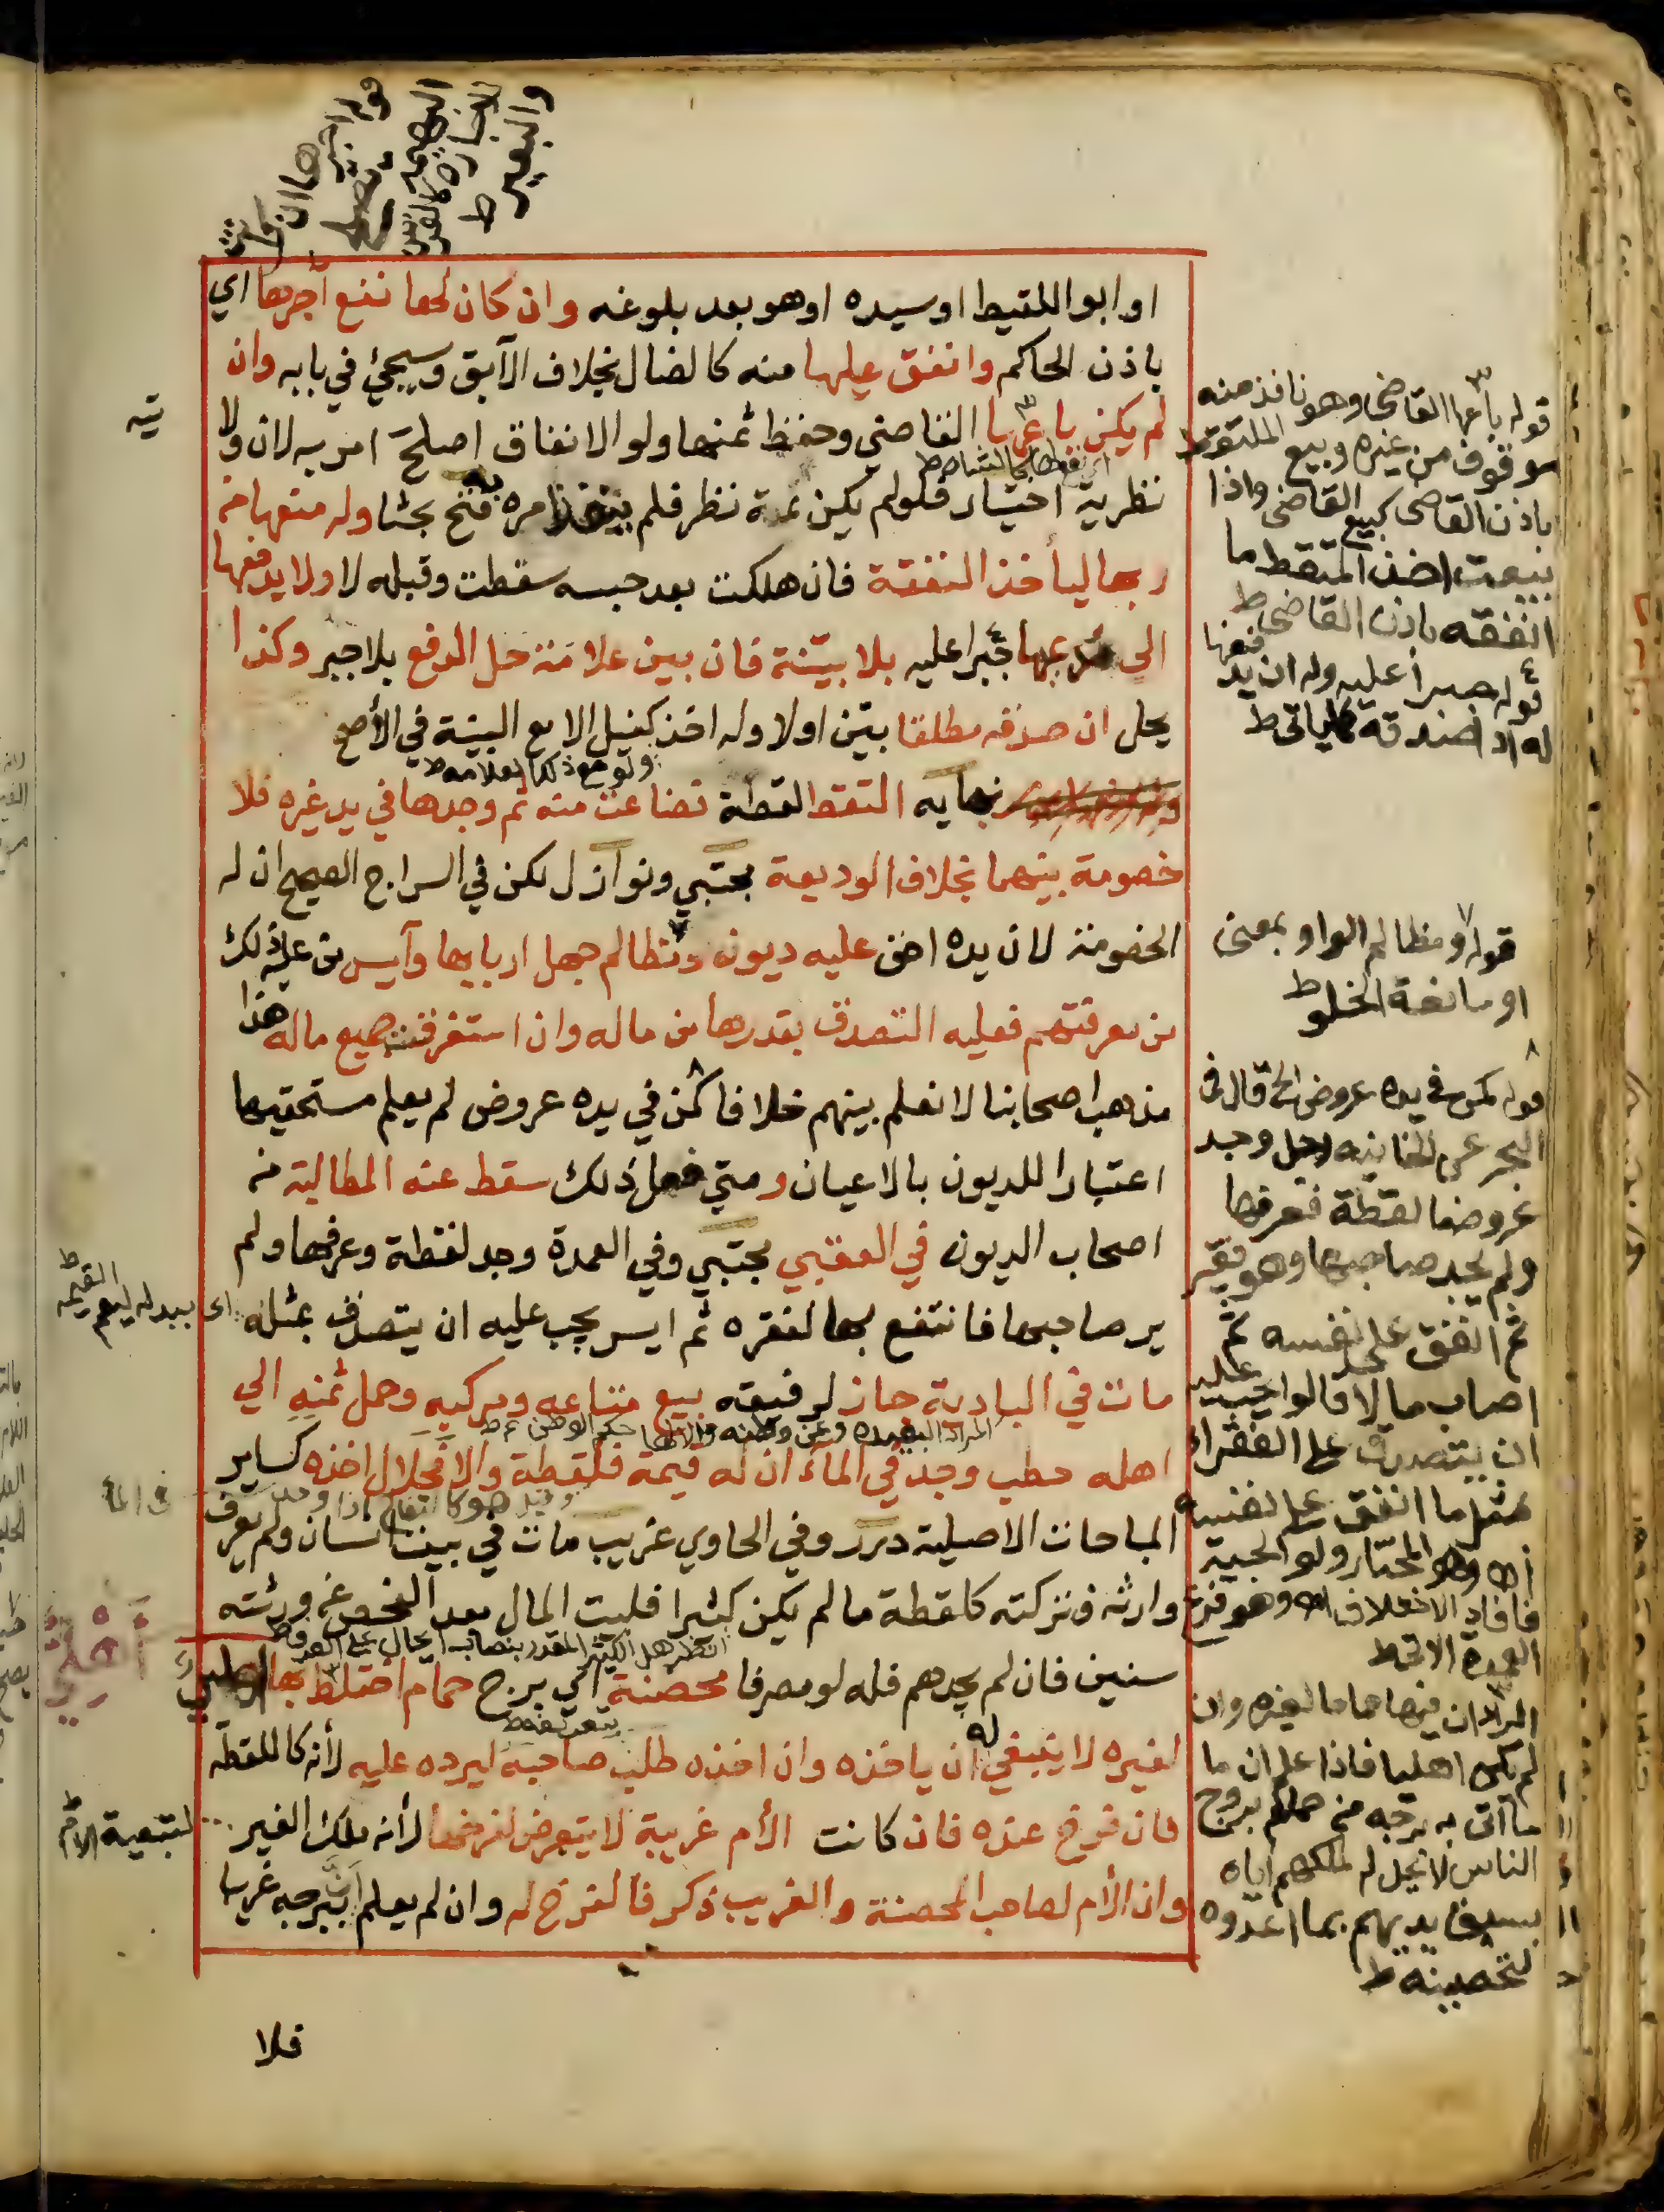 قوله اجرها ان
البهيمة
للاجارة كالفرس
والبعير ط
او ابو اللقيط او سيده او هو بعد بلوغه وان كان لها نفع آجرها اي
باذن الحاكم وانفق عليها منه كالضال بخلاف الآبق وسيجئ في بابه وان
لم يكن باعها القاضي وحفظ ثمنها ولو الانفاق اصلح امر به لان ولا
يته
نظرية اختيار فلو لم يكن ثمة نظر فلم ينفذ امره به فتح بحثا وله منعها من
ربها ليأخذ النفقة فان هلكت بعد حبسه سقطت وقبله لا ولا يدفعها
الى مدعيها جبرا عليه بلا بينة فان بين علامة حل الدفع بلا جبر وكذا
يحل ان صدقه مطلقا بين اولا وله اخذ كفيل الا مع البينة في الأصح
نهايه التقط لقطة فضاعت منه ثم وجدها في يد غيره فلا
خصومة بينهما بخلاف الوديعة مجتبي ونوازل لكن في السراج الصحيح ان له
الخصومة لان يده احق عليه ديون ومظالم جهل اربابها وآيس من عليه ذلك
من معرفتهم فعليه التصدق بقدرها من ماله وان استغرقت جميع ماله هذا
مذهب اصحابنا لا نعلم بينهم خلافا كمن في يده عروض لم يعلم مستحقيها
اعتبارا للديون بالاعيان ومتي فعل ذلك سقط عنه المطالبة من
اصحاب الديون في العقبي مجتبي وفي العمدة وجد لقطة وعرفها ولم
ير صاحبها فانتفع بها لفقره ثم ايسر يجب عليه ان يتصدق بمثله
مات في البادية جاز لرفيقه بيع متاعه ومركبه وحمل ثمنه الي
اهله حطب وجد في الماء ان له قيمة فلقطة والا فحلال اخذه كساير
المباحات الاصلية درر وفي الحاوي غريب مات في بيت انسان ولم يعرف
وارثه فتركته كلقطة ما لم يكن كثيرا فلبيت المال بعد الفحص عن ورثته
سنين فان لم يجدهم فله لو مصرفا محصنة اي برج حمام اختلط بها اهلي
لغيره لا ينبغي له ان ياخذه وان اخذه طلب صاحبه ليرده عليه لأنه كاللقطة
فان فرخ عنده فان كانت الأم غريبة لا يتعرض لفرخها لأنه ملك الغير
وان الأم لصاحب المحصنة والغريب ذكر فالفرخ له وان لم يعلم أن ببرجه غريبا
فلا
قوله باعها القاضي وهو نافذ منه
موقوف من غيره وبيع الملتقط
باذن القاضي كبيع القاضي واذا
بيعت اخذ الملتقط ما
انفقه باذن القاضي ط
قوله جبرا عليه وله ان يدفعها
له اذا صدقه كما ياتي ط
قوله ومظالم الواو بمعنى
او مانعة الخلو ط
قوله كمن في يده عروض الخ قال في
البحر عن الخانيه رجل وجد
عروضا لقطة فعرفها
ولم يجد صاحبها وهو فقير
ثم انفق على نفسه ثم
اصاب مالا قالوا يجب عليه
ان يتصدق على الفقراء
بمثل ما انفق على نفسه
اه وهو المختار ولو الجية
فافاد الاختلاف اه وهو فرع
العمدة الاتي ط
المراد ان فيها حماما لغيره وان
لم يكن اهليا فاذا علم ان ما
ما اتى به برجه من حمام بروج
الناس لا يحل له لملكهم اياه
بسبق يديهم بما اعدوه
لتحصينه ط
ولو مع ذكر العلامه ط
اى ببدله ليعم القيمه ط
في الماء
أهلي
لتبعية الام ط